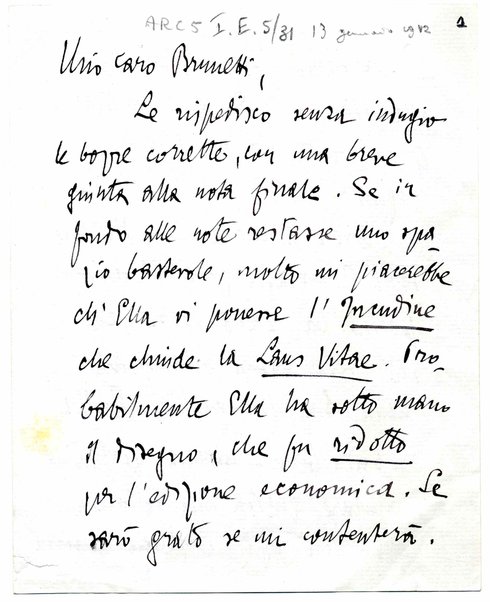 ARC 5 I. E. 5/31 13 gennaio 1912 1
Mio caro Brunetti,
Le rispedisco senza indugio
le bozze corrette, con una breve
giunta alla nota finale. Se in
fondo alle note restasse uno spa
zio bastevole, molto mi piacerebbe
ch' Ella vi ponesse l' Incudine
che chiude la Laus Vitae. Pro
babilmente Ella ha sotto mano
il disegno, che fu ridotto
per l'edizione economica. Le
sarò grato se mi contenterà.